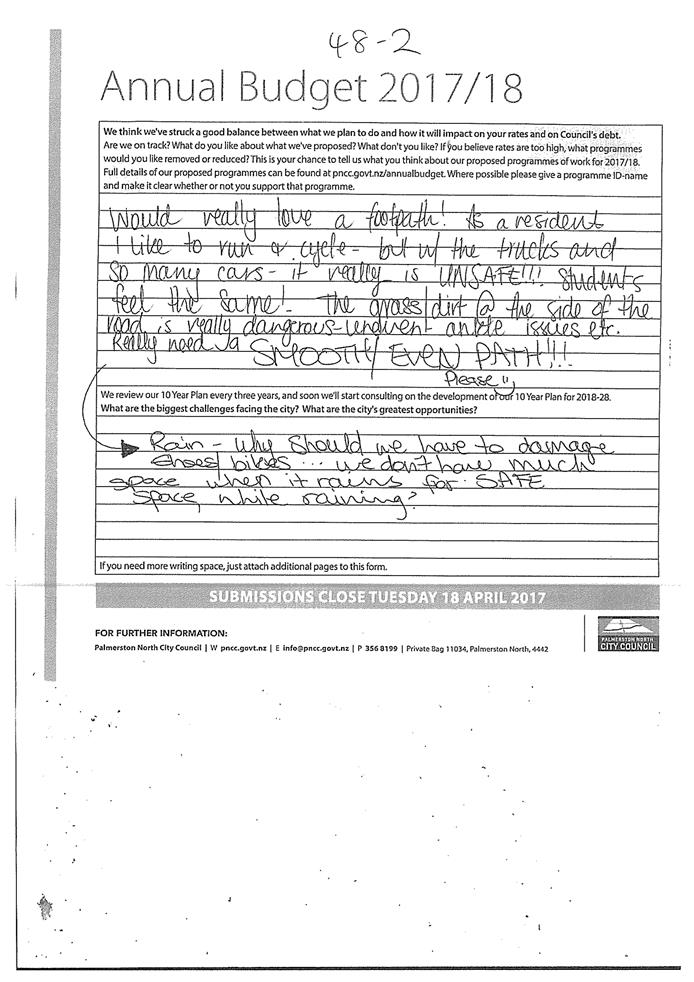 48-2
Annual Budget 2017/18
We think we've struck a good balance between what we plan to do and how it will impact on your rates and on Council's debt.
Are we on track? What do you like about what we've proposed? What don't you like? If you believe rates are too high, what programmes
would you like removed or reduced? This is your chance to tell us what you think about our proposed programmes of work for 2017/18.
Full details of our proposed programmes can be found at pncc.govt.nz/annualbudget. Where possible please give a programme ID-name
and make it clear whether or not you support that programme.
Would really love a footpath! As a resident
I like to run & cycle - but w/ the trucks and
so many cars - it really is UNSAFE!!! Students
feel the same! The grass/dirt @ the side of the
road is really dangerous - ankle issues etc.
Really need a SMOOTH/EVEN PATH!!!
Please
We review our 10 Year Plan every three years, and soon we'll start consulting on the development of our 10 Year Plan for 2018-28.
What are the biggest challenges facing the city? What are the city's greatest opportunities?
Rain - why should we have to damage
shoes/bikes ... we don't have much
space when it rains for SAFE
space while raining?
If you need more writing space, just attach additional pages to this form.
SUBMISSIONS CLOSE TUESDAY 18 APRIL 2017
FOR FURTHER INFORMATION:
Palmerston North City Council | W pncc.govt.nz | E info@pncc.govt.nz | P 356 8199 | Private Bag 11034, Palmerston North, 4442
PALMERSTON NORTH
CITY COUNCIL